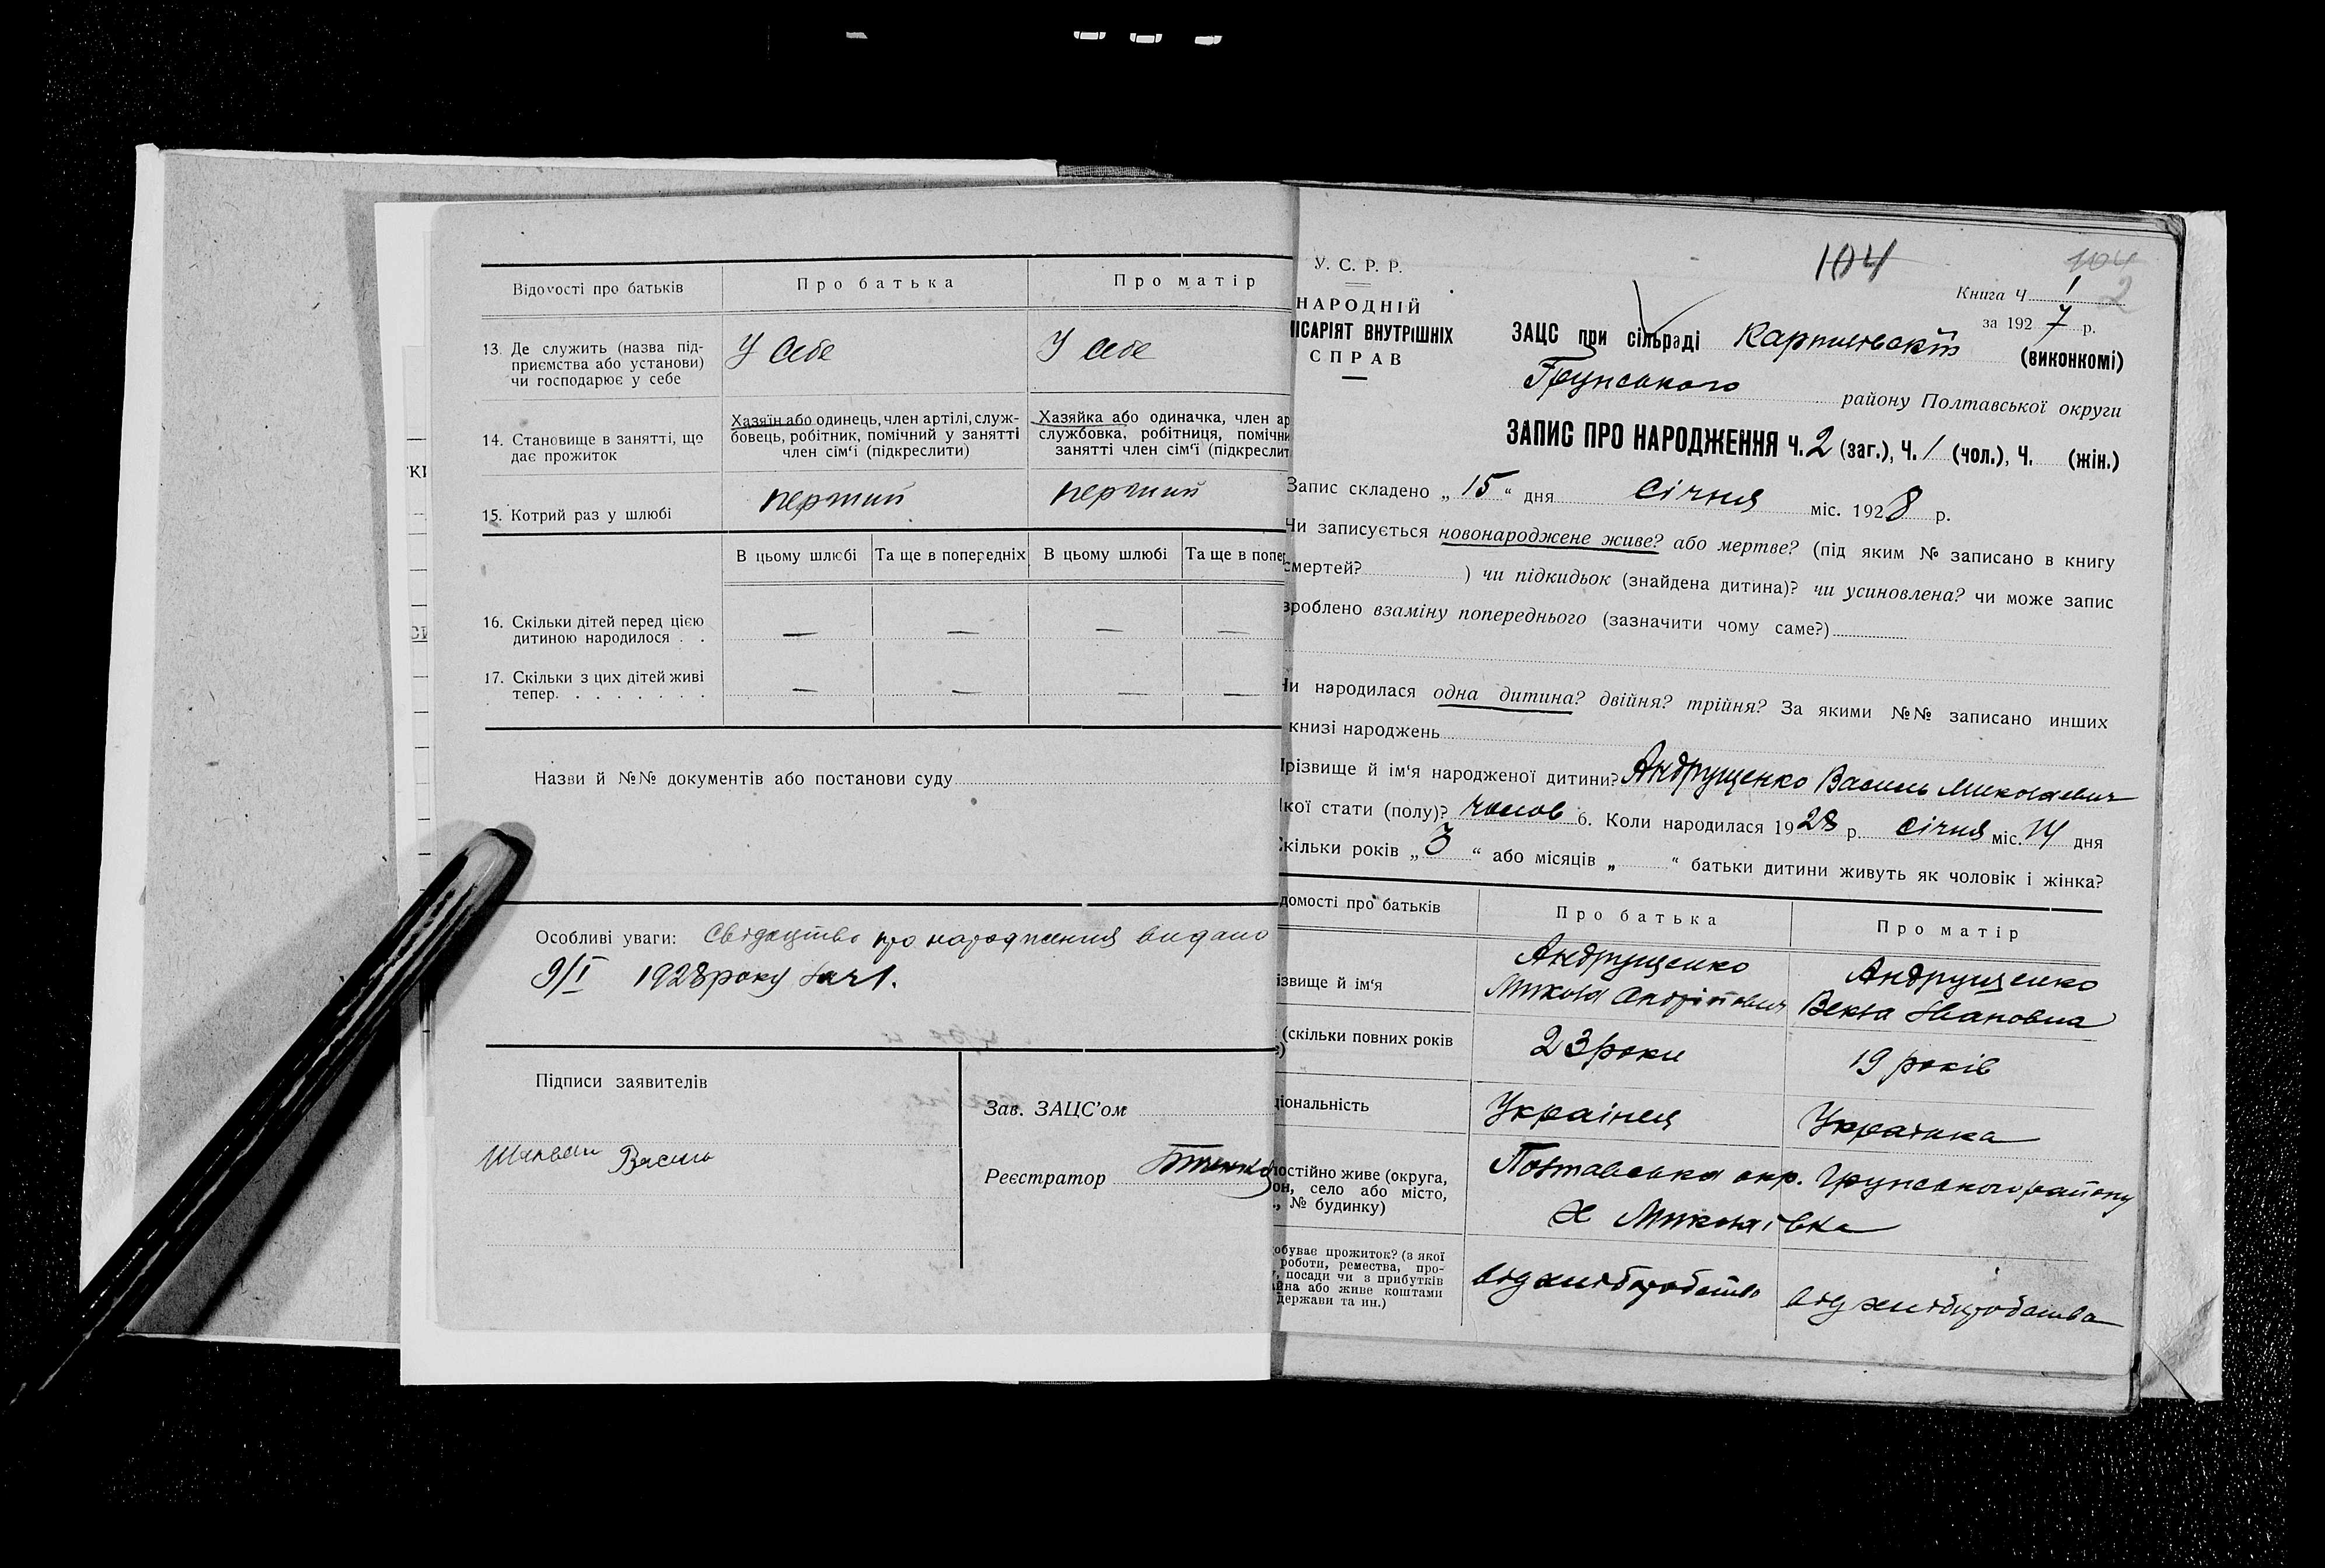 Відомості про батьків
Про батька
Про матір
13. Де служить (назва під-
приємства або установи)
чи господарює у себе
У себе
У себе
14. Становище в занятті, що
дає прожиток
Хазяїн або одинець, член артілі, служ-
бовець, робітник, помічний у занятті
член сім'ї (підкреслити)
Хазяйка або одиначка, член ар
службовка, робітниця, помічни
занятті член сім'ї (підкреслит
15. Котрий раз у шлюбі
перший
перший
В цьому шлюбі
Та ще в попередніх
В цьому шлюбі
Та ще в попер
16. Скільки дітей перед цією
дитиною народилося . .
— — — —
17. Скільки з цих дітей живі
тепер. . . . . . . .
— — — —
Назви й №№ документів або постанови суду
Особливі уваги: Свідоцтво про народження видано
9/I 1928 року за ч 1.
Підписи заявителів
Василь
Зав. ЗАЦС'ом
Реєстратор
104
104
2
У. С. Р. Р.
НАРОДНІЙ
ІСАРІЯТ ВНУТРІШНІХ
СПРАВ
Книга Ч 1
за 1927 р.
ЗАЦС при сільраді Карпилівській (виконкомі)
Грунського району Полтавської округи
ЗАПИС ПРО НАРОДЖЕННЯ Ч. 2 (заг.), Ч. 1 (чол.), Ч. (жін.)
Запис складено „15“ дня Січня міс. 1928 р.
Чи записується новонароджене живе? або мертве? (під яким № записано в книгу
смертей? ) чи підкидьок (знайдена дитина)? чи усиновлена? чи може запис
зроблено взаміну попереднього (зазначити чому саме?)
Чи народилася одна дитина? двійня? трійня? За якими №№ записано инших
книзі народжень
різвище й ім'я народженої дитини? Андрущенко Василь Миколаевич
кої стати (полу)? чолов 6. Коли народилася 1928 р. січня міс. 14 дня
кільки років „3“ або місяців „ “ батьки дитини живуть як чоловік і жінка?
домості про батьків
Про батька
Про матір
ізвище й ім'я
Андрущенко
Микола Андрійович
Андрущенко
Векла Івановна
(скільки повних років
23 роки
19 років
ціональність
Українец
Українка
постійно живе (округа,
он, село або місто,
., № будинку)
Полтавська окр. Грунського району
х Миколаївка
обуває прожиток? (з якої
роботи, ремества, про-
, посади чи з прибутків
айна або живе коштами
держави та ин.)
від хліборобства
від хліборобства